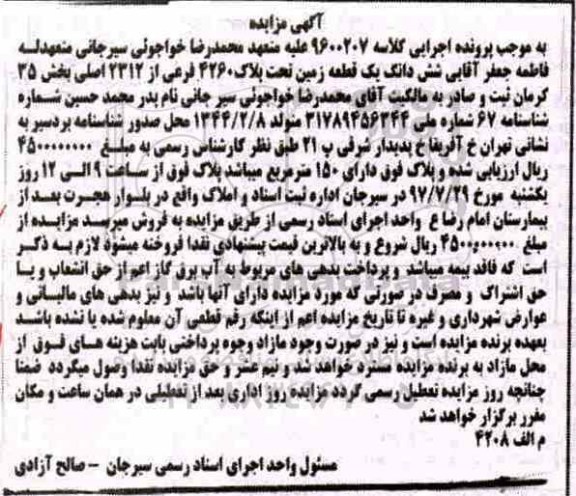 آگهی مزایده
به موجب پرونده اجرایی کلاسه ۹۶۰۰۲۰۷ علیه متعهد محمدرضا خواجوئی سیرجانی متعهدلـه
فاطمه جعفر آقایی شش دانگ یک قطعه زمین تحت پلاک۴۲۶۰ فرعی از ۲۳۱۲ اصلی بخش ۳۵
کرمان ثبت و صادر به مالکیت آقای محمدرضا خواجوئی سیر جانی نام پدر محمد حسین شمـاره
شناسنامه ۶۷ شماره ملی ۳۱۷۸۹۴۵۶۳۴۴ متولد ۱۳۴۴/۲/۸ محل صدور شناسنامه بردسیر به
نشانی تهران خ آفریقا خ پدیدار شرقی پ ۲۱ طبق نظر کارشناس رسمی به مبلـغ ۴۵۰۰۰۰۰۰۰۰
ریال ارزیابی شده و پلاک فوق دارای ۱۵۰ مترمربع میباشد پلاک فوق از ساعت ۹ الـی ۱۲ روز
یکشنبه مورخ ۹۷/۷/۲۹ در سیرجان اداره ثبت اسناد و املاک واقع در بلـوار هجـرت بعـد از
بیمارستان امام رضا ع واحد اجرای اسناد رسمی از طریق مزایده به فروش میرسد مزایـده از
مبلغ ۴۵۰۰۰۰۰۰۰۰ ریال شروع و به بالاترین قیمت پیشنهادی نقدا فروخته میشود لازم بـه ذکـر
است که فاقد بیمه میباشد و پرداخت بدهی های مربوط به آب برق گاز اعم از حق انشعاب و یـا
حق اشتراک و مصرف در صورتی که مورد مزایده دارای آنها باشد و نیز بدهی های مالیـاتی و
عوارض شهرداری و غیره تا تاریخ مزایده اعم از اینکه رقم قطعی آن معلوم شده یا نشده باشد
بعهده برنده مزایده است و نیز در صورت وجود مازاد وجوه پرداختی بابت هزینه هـای فـوق از
محل مازاد به برنده مزایده مسترد خواهد شد و نیم عشر و حق مزایده نقدا وصول میگردد ضمنا
چنانچه روز مزایده تعطیل رسمی گردد مزایده روز اداری بعد از تعطیلی در همان ساعت و مکان
مقرر برگزار خواهد شد
م الف ۴۲۰۸
مسئول واحد اجرای اسناد رسمی سیرجان - صالح آزادی